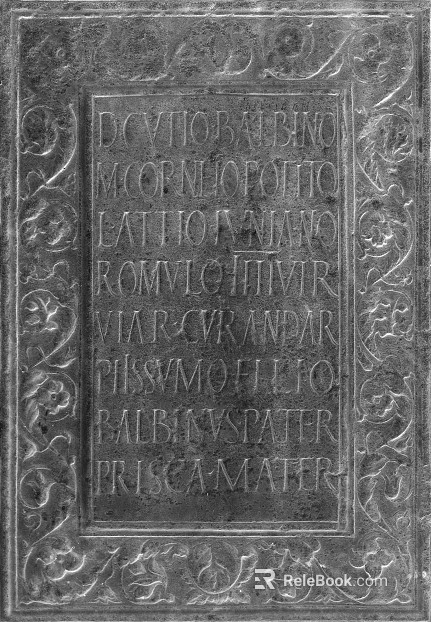 D CVTIO BALBINO
M CORNELIO POTITO
L ATTIO IVNIANO
ROMVLO IIII VIR
VIAR·CVRANDAR
PIISSVMO FILIO
BALBINVS PATER
PRISCA·MATER
ReleBook.com